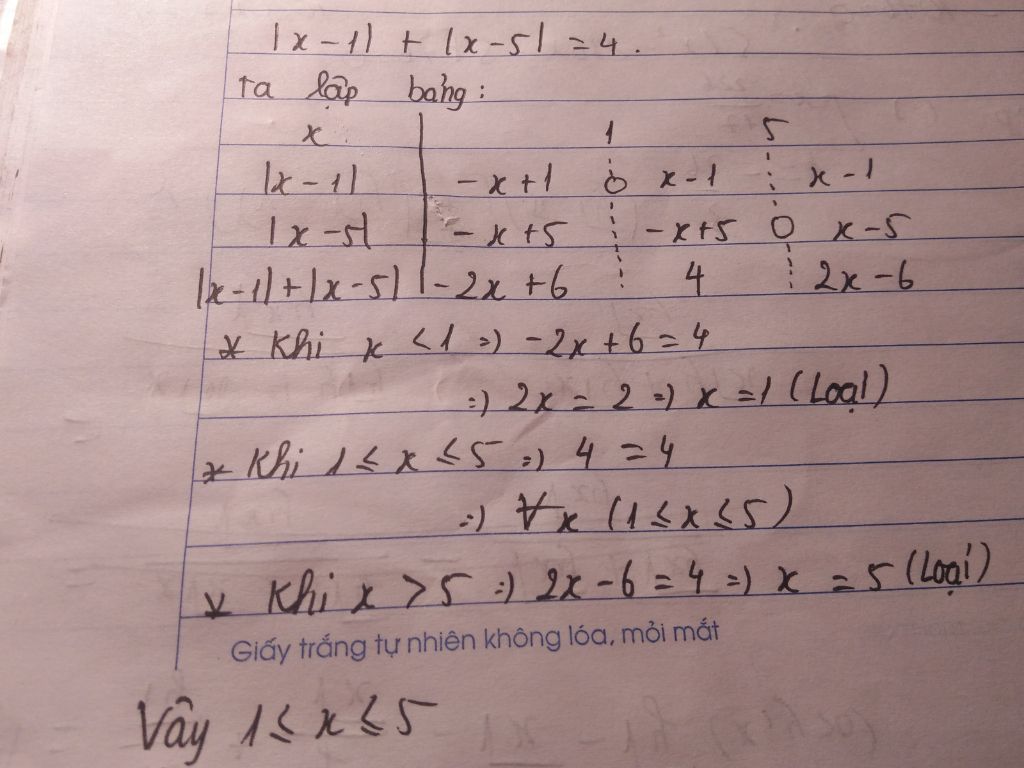 |x-1| + |x-5| = 4.
ta lập bảng:
x 1 5
|x-1| -x+1 0 x-1 x-1
|x-5| -x+5 -x+5 0 x-5
|x-1|+|x-5| -2x+6 4 2x-6
* Khi x < 1 => -2x+6 = 4
=> 2x = 2 => x = 1 (Loại)
* Khi 1 ≤ x ≤ 5 => 4 = 4
=> ∀x (1 ≤ x ≤ 5)
* Khi x > 5 => 2x-6 = 4 => x = 5 (Loại)
Giấy trắng tự nhiên không lóa, mỏi mắt
Vậy 1 ≤ x ≤ 5